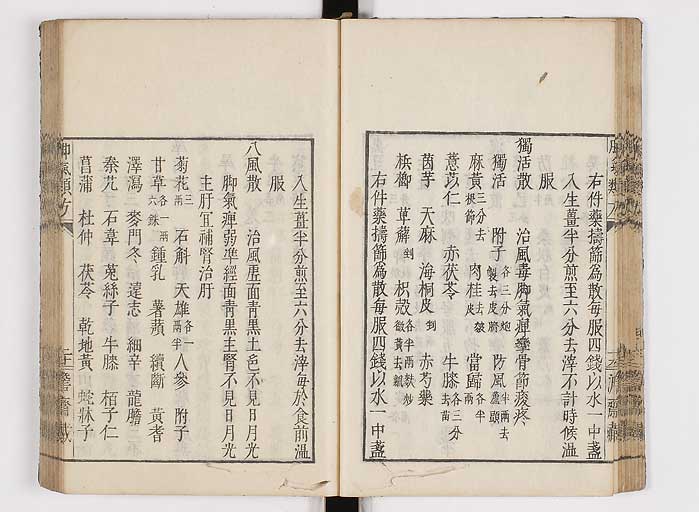 右件藥擣篩為散每服四錢以水一中盞
入生薑半分煎至六分去滓不計時候溫
服
獨活散　治風毒脚氣痺攣骨節痠疼
獨活　附子各三分炮製去皮臍　防風半兩去蘆頭
麻黃三分去根節　肉桂去皺皮　當歸各半兩
薏苡仁　赤茯苓　牛膝各三分去苗
茵芋　天麻　海桐皮剉　赤芍藥
檳榔　萆薢剉　枳殼各半兩麩炒微黃去瓤
右件藥擣篩為散每服四錢以水一中盞
入生薑半分煎至六分去滓每於食前溫
服
八風散　治風虛面青黑土色不見日月光
脚氣痺弱準經面青黑主腎不見日月光
主肝宜補腎治肝
菊花三兩　石斛　天雄各一兩半　人參　附子
甘草各一兩六銖　鍾乳　薯蕷　續斷　黃耆
澤瀉　麥門冬　遠志　細辛　龍膽
秦艽　石韋　菟絲子　牛膝　栢子仁
菖蒲　杜仲　茯苓　乾地黃　蛇牀子
脚氣類方